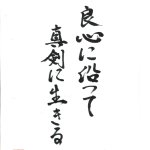 良心に沿って
真剣に生きる